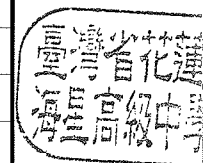 臺灣省花蓮
海星高級中